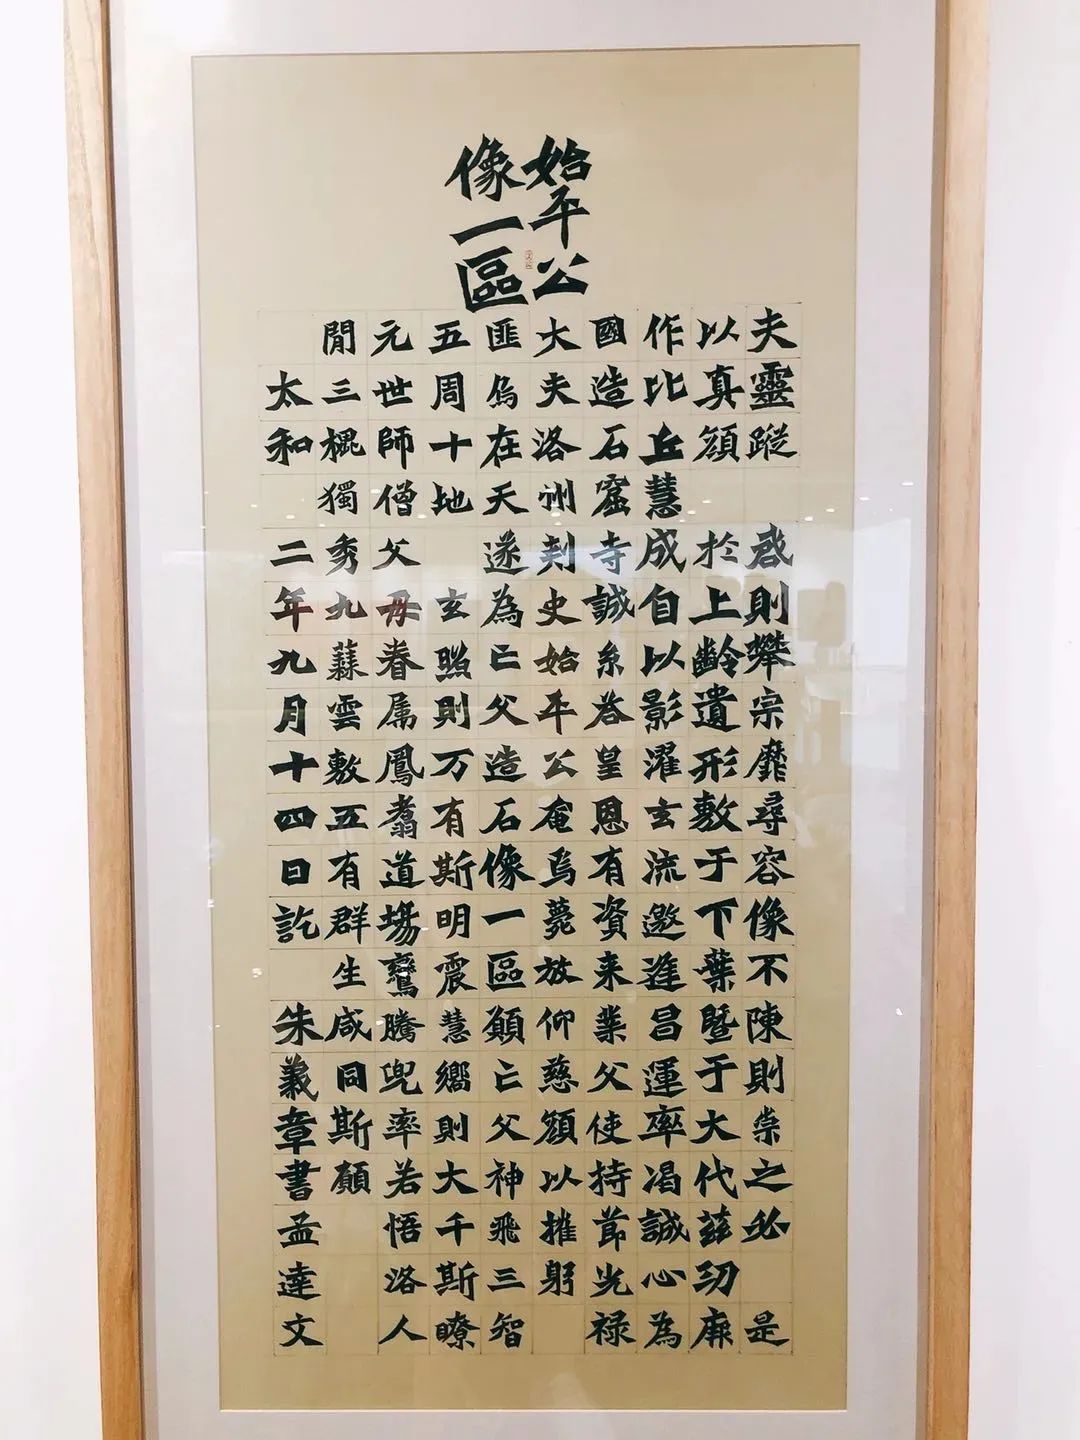 始平公
像一區
夫靈蹤 啓則攀宗靡尋容像不陳則崇之必 是
以真顔 於上齡遺形敷于下葉暨于大代茲功厥
作比丘慧成自以影濯玄流邀逢昌運率渴誠心為
國造石窟寺誠系荅皇恩有資来業父使持節光禄
大夫洛州刾史始平公奄焉薨放仰慈顔以摧躬
匪烏在天遂為亡父造石像一區願亡父神飛三智
五周十地 玄照則万有斯明震慧嚮則大千斯瞭
元世師僧父母眷属鳳翥道場鸞騰兜率若悟洛人
閒三槐獨秀九蕀雲敷五有群生咸同斯願
太和 二年九月十四日訖 朱義章書孟達文